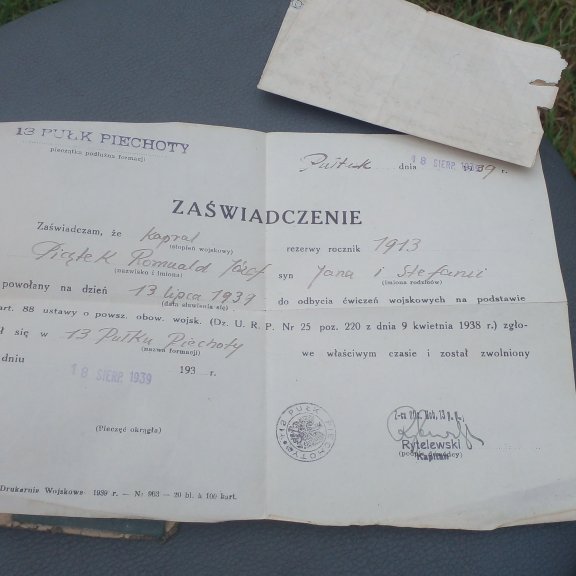 13 PUŁK PIECHOTY
pieczątka podłużna formacji
Pułtusk dnia 18 SIERP. 1939 r.
ZAŚWIADCZENIE
Zaświadczam, że kapral rezerwy rocznik 1913
(stopień wojskowy)
Piątek Romuald Józef syn Jana i Stefanii
(nazwisko i imiona) (imiona rodziców)
powołany na dzień 13 lipca 1939 do odbycia ćwiczeń wojskowych na podstawie
(data stawienia się)
art. 88 ustawy o powsz. obow. wojsk. (Dz. U. R. P. Nr 25 poz. 220 z dnia 9 kwietnia 1938 r.) zgło-
ł się w 13 Pułku Piechoty we właściwym czasie i został zwolniony
(nazwa formacji)
dniu 18 SIERP. 1939 193 r.
(Pieczęć okrągła)
13 PUŁK PIECHOTY
Rytelewski
Kapitan
Drukarnie Wojskowe 1939 r. — Nr 963 — 20 bl. à 100 kart.